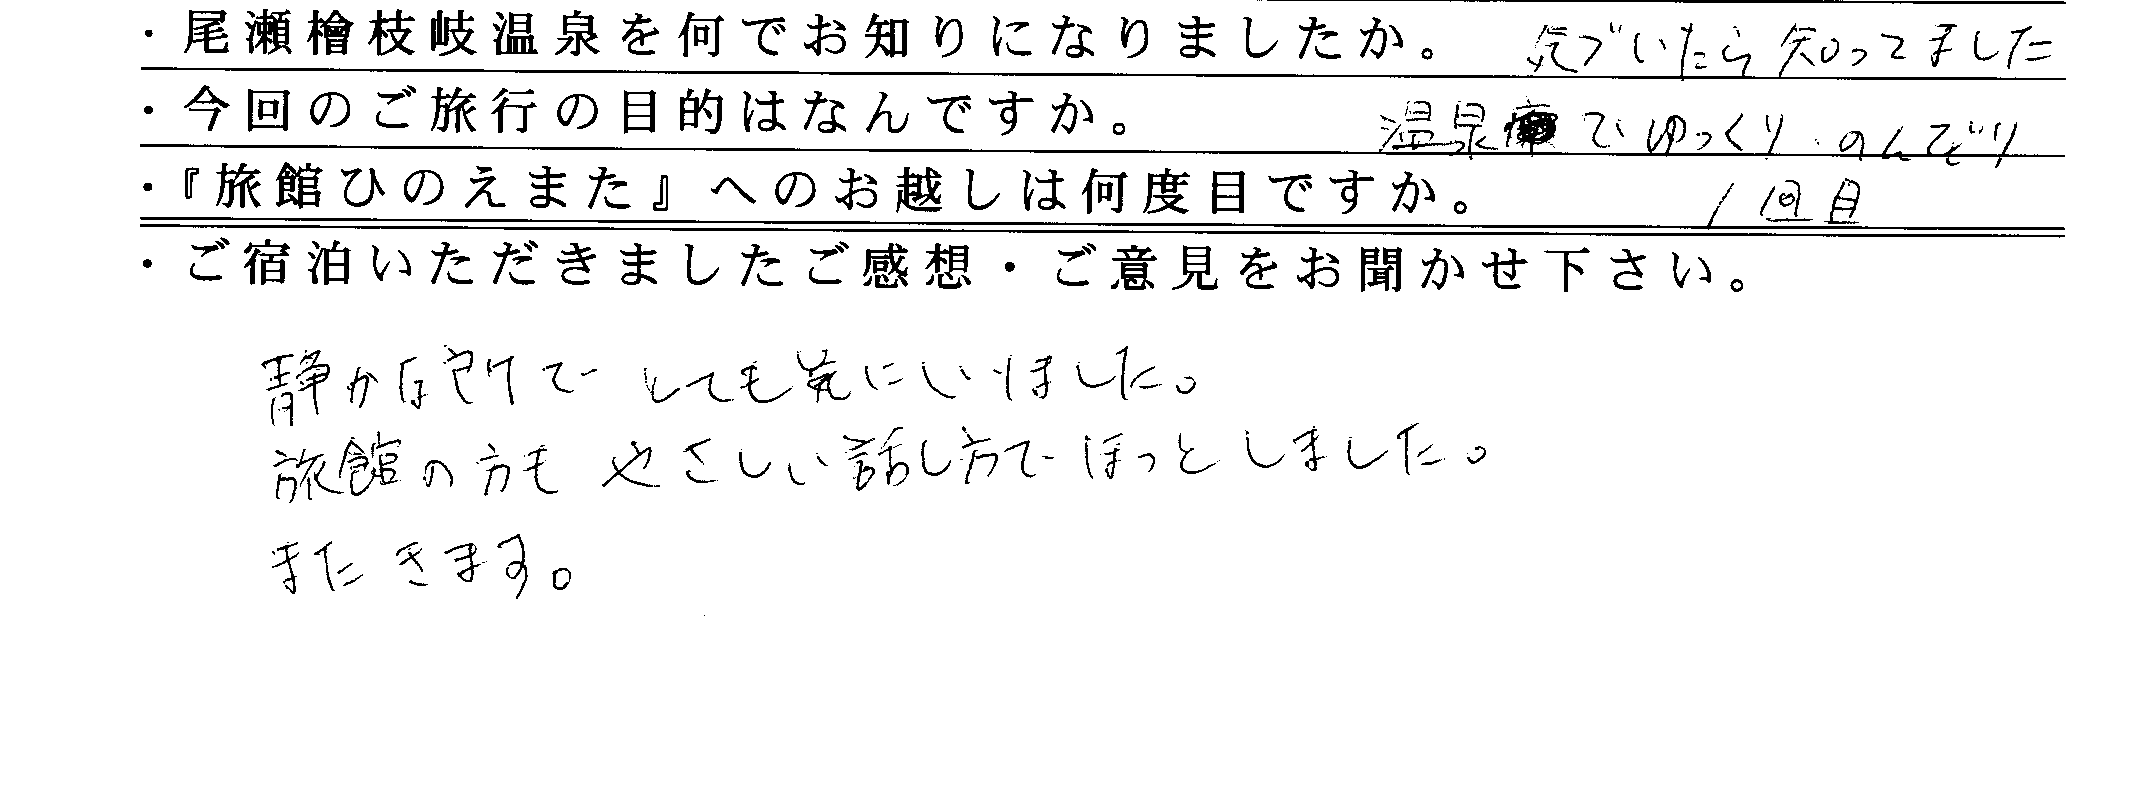 ・尾瀬檜枝岐温泉を何でお知りになりましたか。 気づいたら知ってました
・今回のご旅行の目的はなんですか。 温泉でゆっくり のんびり
・『旅館ひのえまた』へのお越しは何度目ですか。 1回目
・ご宿泊いただきましたご感想・ご意見をお聞かせ下さい。
静かな所で とても気にいりました。
旅館の方も やさしい話し方で ほっと しました。
また きます。